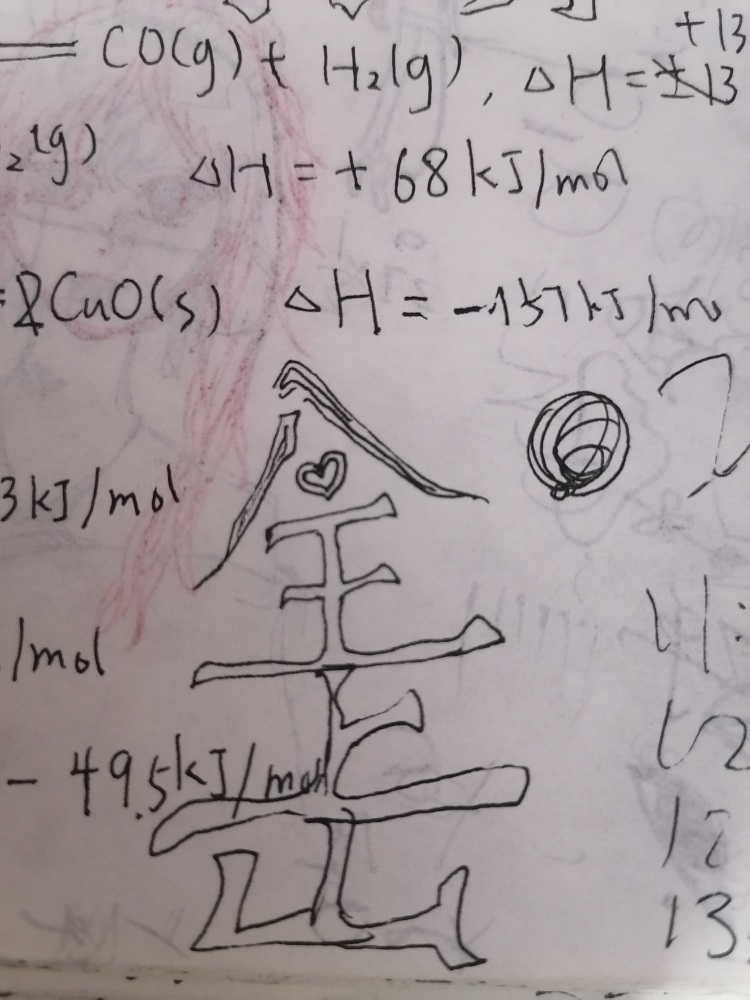 CO(g) + H₂(g), ΔH = +13
₂(g) ΔH = + 68 kJ/mol
CuO(s) ΔH = -157 kJ/mo
3 kJ/mol
/mol
全
- 49.5 kJ/mol
11.
12
13.